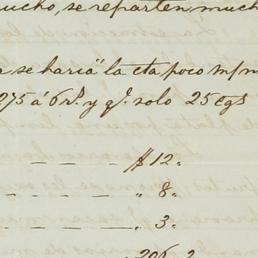 mucho, se reparten much
se haria" la cta poco m/m
275 á 6 rs. y qe. solo 25 cgs
— — — $ 12 "
— — — " 8 "
— — — " 3 "
206. 2